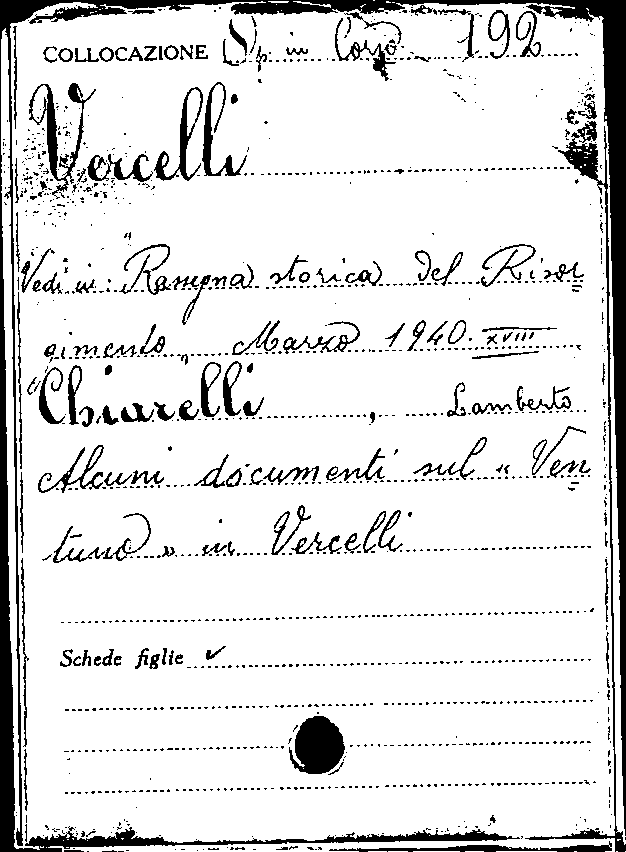 COLLOCAZIONE Sp. in Corso 192
Vercelli
Vedi in: "Rassegna storica del Risor
gimento„ Marzo 1940. XVIII
"Chiarelli, Lamberto
Alcuni documenti sul « Ven
tuno » in Vercelli
Schede figlie ✓